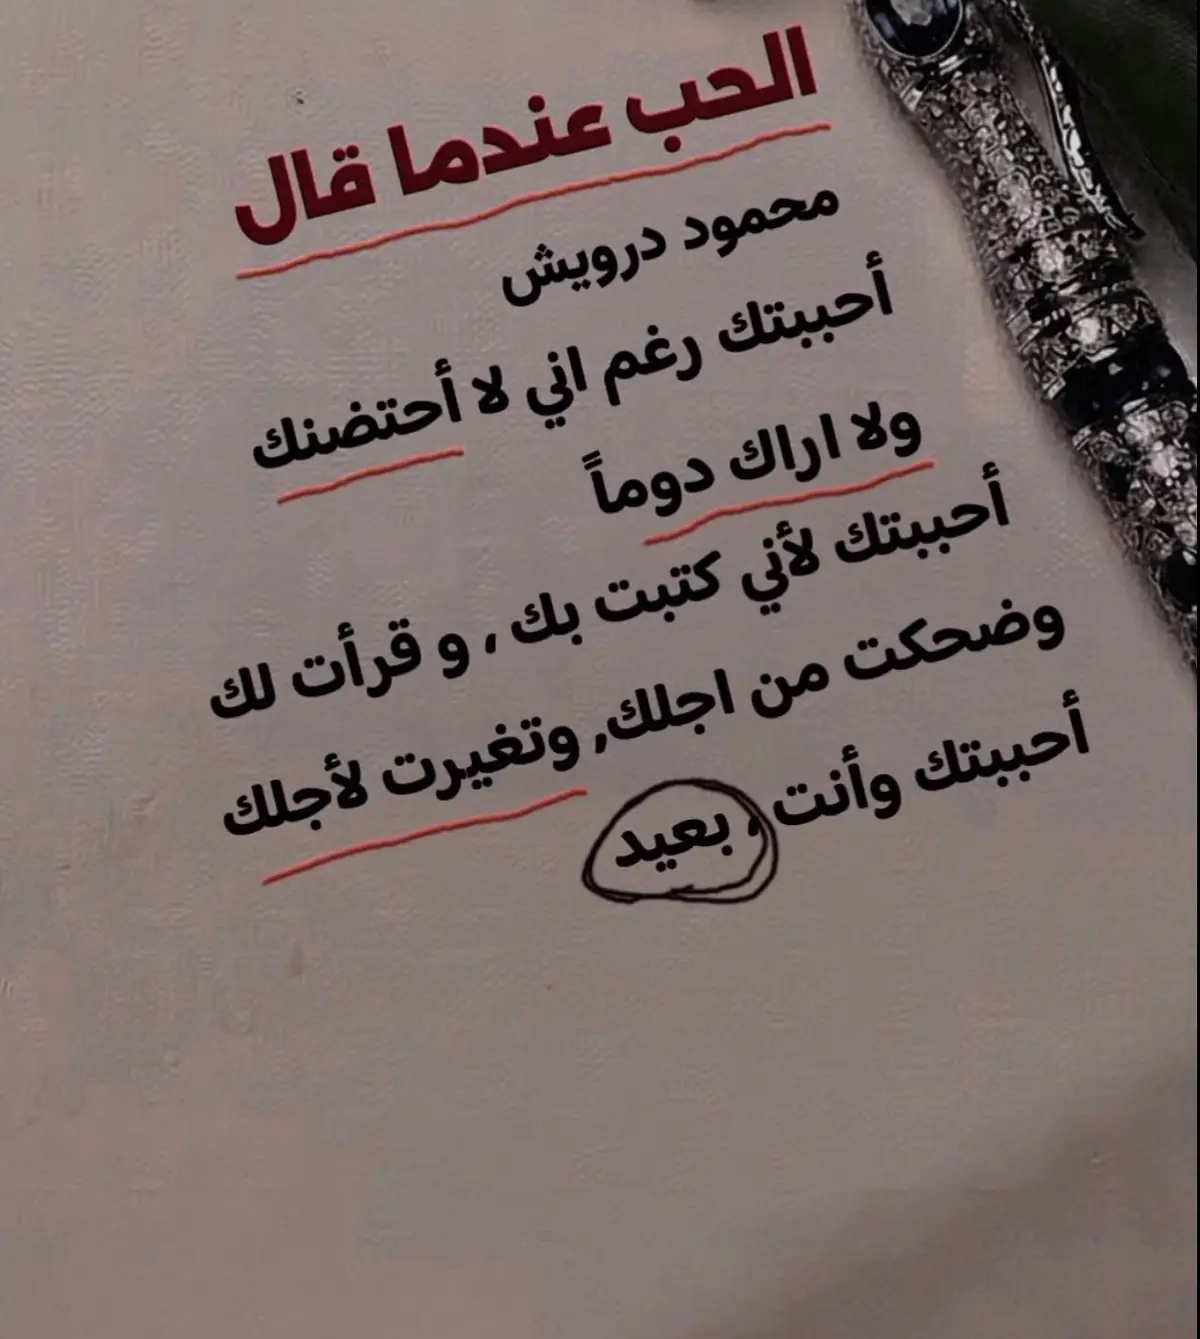 الحب عندما قال
محمود درويش
أحببتك رغم اني لا أحتضنك
ولا اراك دوماً
أحببتك لأني كتبت بك ، و قرأت لك
وضحكت من اجلك, وتغيرت لأجلك
أحببتك وأنت ، بعيد